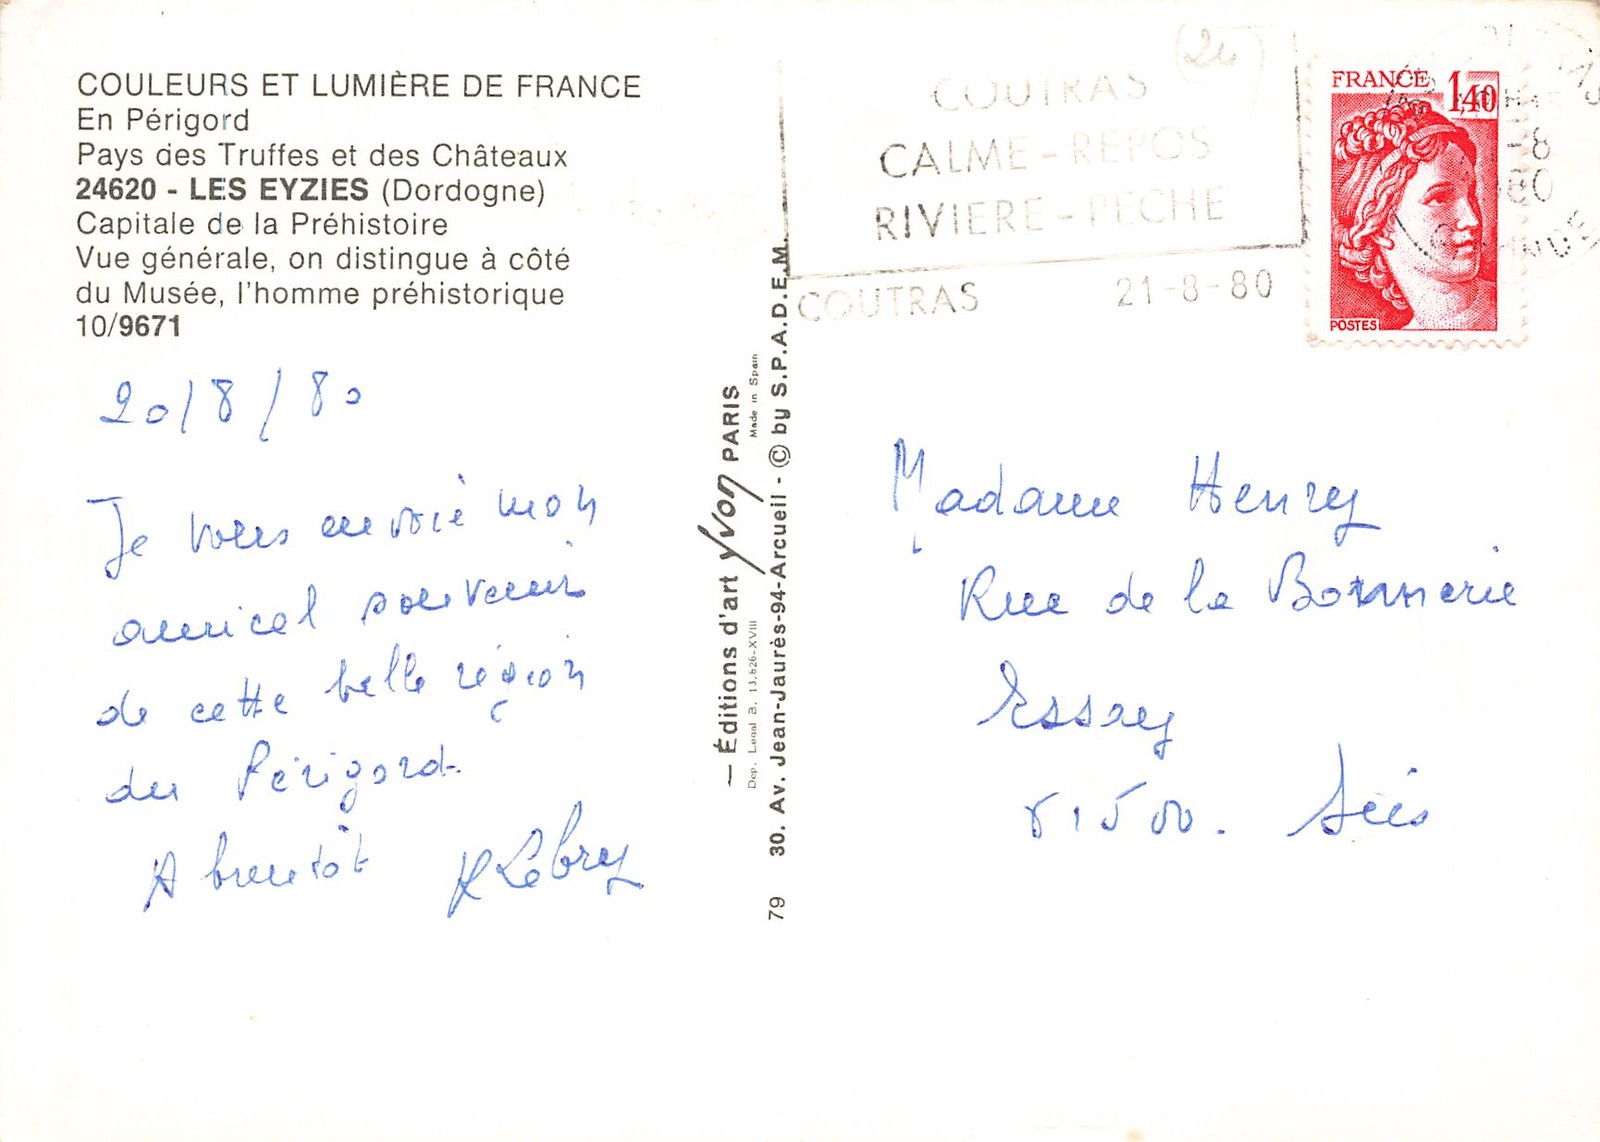 COULEURS ET LUMIÈRE DE FRANCE
En Périgord
Pays des Truffes et des Châteaux
24620 - LES EYZIES (Dordogne)
Capitale de la Préhistoire
Vue générale, on distingue à côté
du Musée, l'homme préhistorique
10/9671
20/8/80
Je vous envoie mon
amical souvenir
de cette belle région
du Périgord.
A bientôt
— Éditions d'art Yvon PARIS
Made in Spain
Dep. Legal B. 13.826-XVIII
79 30. Av. Jean-Jaurès-94-Arcueil - © by S.P.A.D.E.M.
(24)
COUTRAS
CALME - REPOS
RIVIERE - PECHE
COUTRAS 21-8-80
FRANCE 1,40
POSTES
-8
80
Madame Henry
Rue de la Bonnerie
Essay
61500. Sées